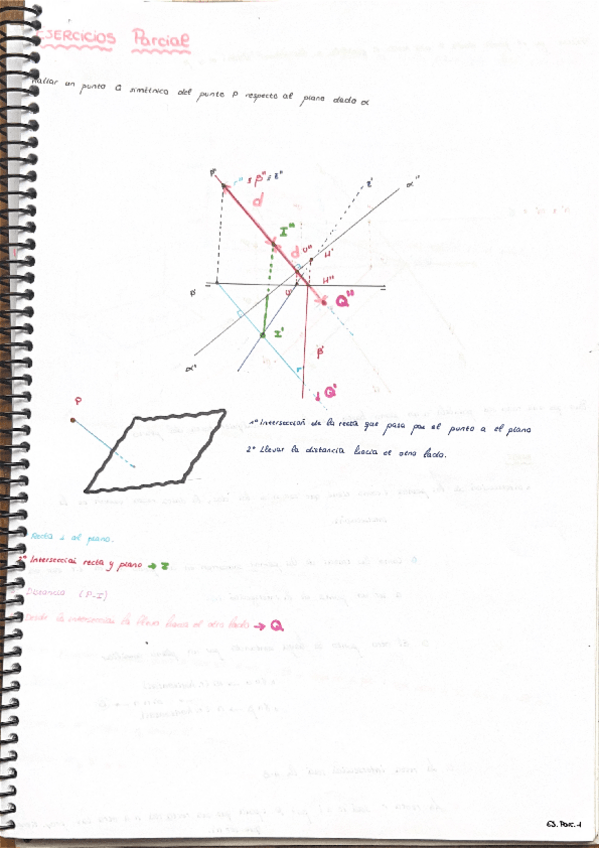 EJERCICIOS PARCIAL
Hallar un punto Q simétrico del punto P respecto al plano dado α
P"
r" ≡ β" ≡ z"
z'
α"
d
I"
d
U"
H'
P'
U'
H"
Q"
I'
β'
α'
r'
Q'
P
1º Intersección de la recta que pasa por el punto a el plano
2º Llevar la distancia hacia el otro lado.
Recta ⊥ al plano.
2º Intersección recta y plano → I
Distancia (P-I)
Desde la intersección la llevo hacia el otro lado → Q
EJ. Parc. 1